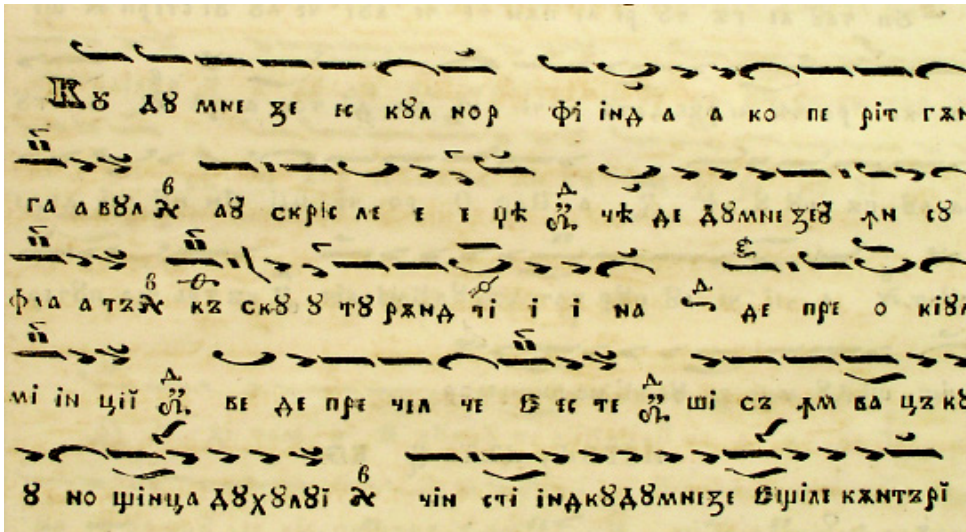 Кꙋ дꙋ мне зе ес кꙋл нор фі інд а а ко пе ріт гѫн
га а вꙋл аꙋ скріс ле е е џѣ чѣ де дꙋмнезеꙋ ꙟн сꙋ
фла а тъ къ скꙋ ꙋ тꙋ рѫнд чі і і на де пре о кіꙋл
мі ін ції ве де пре чел че Есте ші съ ꙟм ва цъ кꙋ
ꙋ но щінца дꙋхꙋлꙋї чін сті індкꙋдꙋмнезе Ещіле кѫнтърї